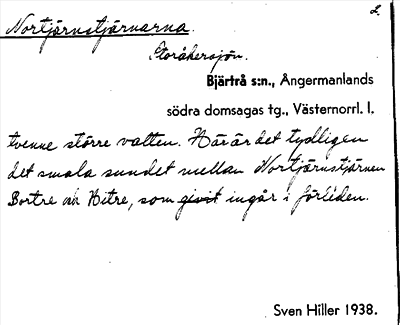 2.
Nortjärnstjärnarna.
Storåkersjön.
Bjärtrå s:n., Ångermanlands
södra domsagas tg., Västernorrl. l.
tvenne större vatten. Här är det tydligen
det smala sundet mellan Nortjärnstjärnen
Bortre och Hitre, som givit ingår i förleden.
Sven Hiller 1938.